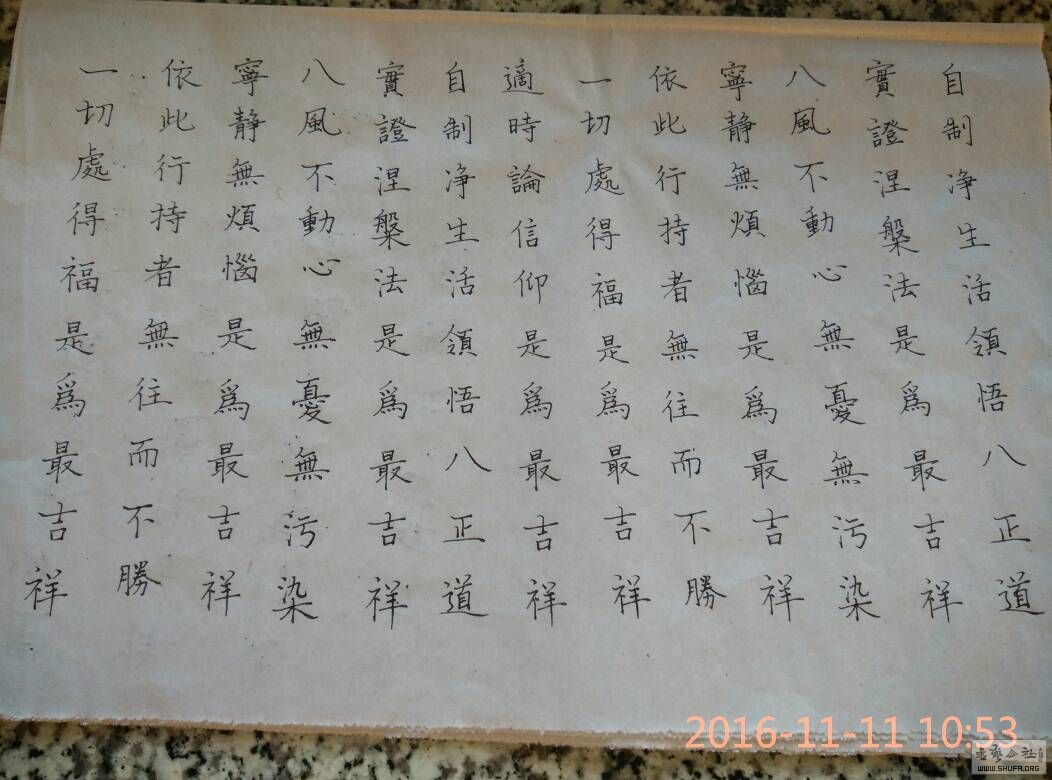 自制净生活領悟八正道
實證涅槃法是爲最吉祥
八風不動心無憂無污染
寧靜無煩惱是爲最吉祥
依此行持者無往而不勝
一切處得福是爲最吉祥
適時論信仰是爲最吉祥
自制净生活領悟八正道
實證涅槃法是爲最吉祥
八風不動心無憂無污染
寧靜無煩惱是爲最吉祥
依此行持者無往而不勝
一切處得福是爲最吉祥
2016-11-11 10:53
WWW.SHUFA.ORG